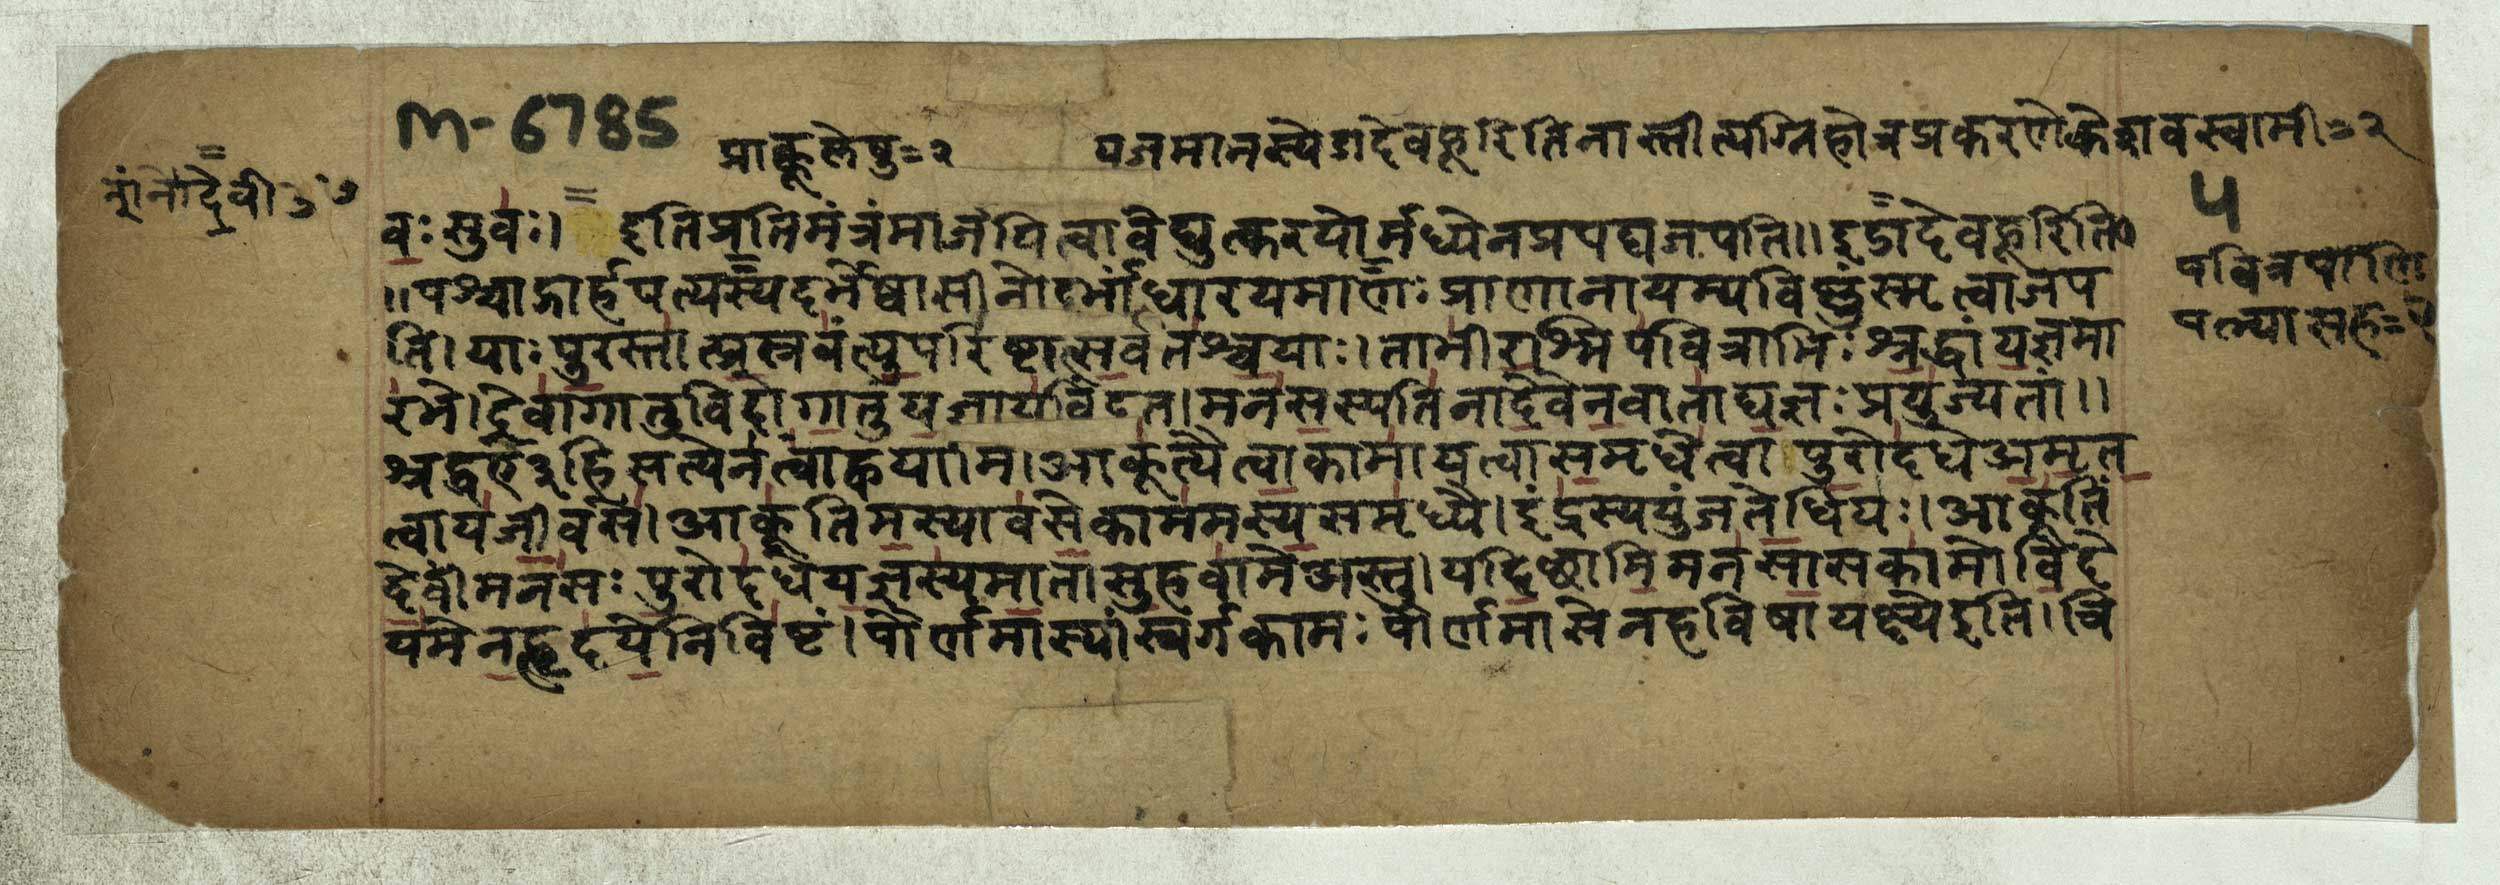 M-6785
प्राक्कूलेषु=२ यजमानस्येडादेवहूरितिनास्तीत्यग्निहोत्रप्रकरणेकेशवस्वामी=२
५
वः सुवः। इतिप्रतिमंत्रंमार्जयित्वावैद्युत्करयोर्मध्येनप्रपद्यजपति॥इडादेवहूरिति
॥पश्चाद्गार्हपत्यस्यदर्भेष्वासीनोदर्भान्धारयमाणः प्राणानायम्यविष्णुंस्मृत्वाजप
पवित्रपाणिः
पत्न्यासह=
ति। याः पुरस्तात्प्रस्रवंत्युपरिष्टात्सर्वतश्चयाः। ताभीरश्मिपवित्राभिः श्रद्धांयज्ञमा
रभे। देवागातुविदोगातुंयज्ञायविंदत। मनसस्पतिनादेवेनवाताद्यज्ञः प्रयुज्यतां॥
श्रद्धएहिसत्येनत्वाह्वयामि। आकूत्यैत्वाकामायत्वासमृधेत्वा पुरोदधेअमृत
त्वायजीवसे। आकूतिमस्यावसेकाममस्यसमृध्यै। इंद्रस्ययुंजतेधियः। आकूतिं
देवींमनसः पुरोदधेयज्ञस्यमातासुहवामेअस्तु। यदिच्छामिमनसासकामोविदे
यमेनद्धृदयेनिविष्टं। पौर्णमास्यांस्वर्गकामः पौर्णमासेनहविषायक्ष्येइति। वि